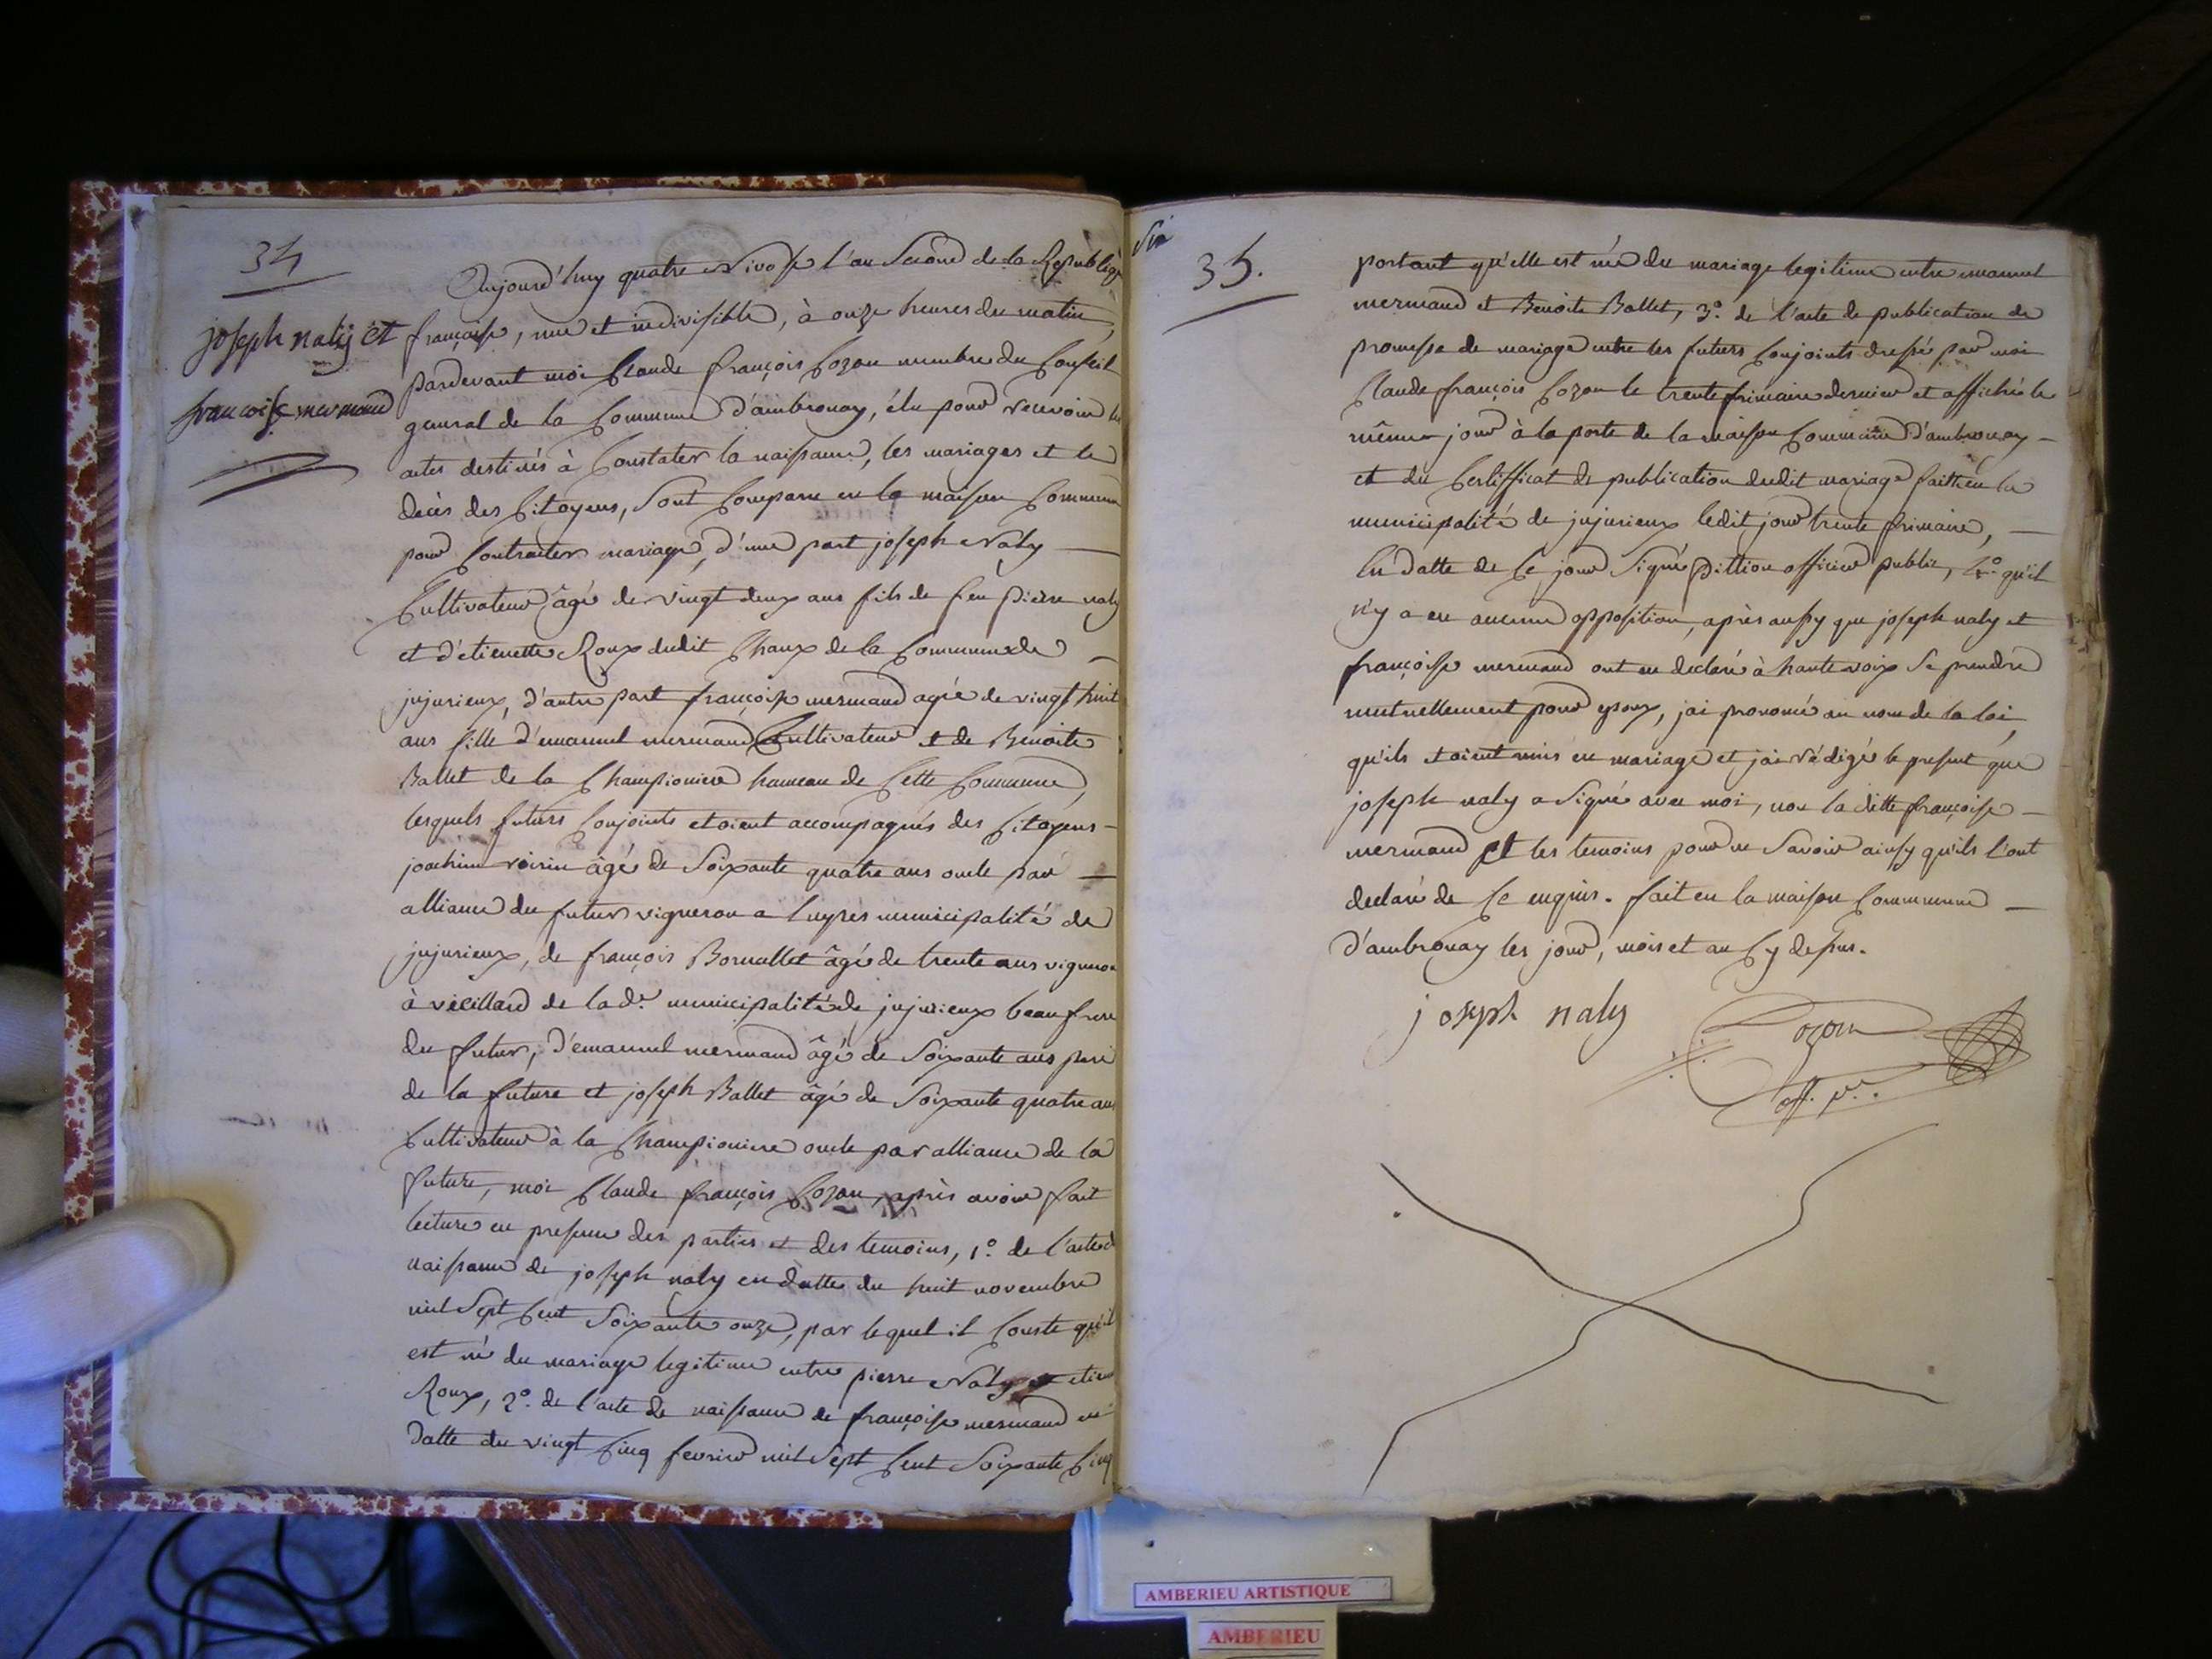 34
joseph naly et
francoise mermand
Aujourd'huy quatre Nivose l'an Second de la Republiq
française, une et indivisible, à onze heures du matin,
pardevant moi Claude françois Cozon membre du Conseil
general de la Commune d'ambronay, élu pour recevoir les
actes destinés à Constater la naissance, les mariages et le
decès des Citoyens, Sont Comparu en la maison Commune
pour Contracter mariage, d'une part joseph Naly
Cultivateur âgé de vingt deux ans fils de feu pierre naly
et d'etienette Roux dudit Chaux de la Commune de
jujurieux, d'autre part françoise mermand agée de vingt huit
ans fille d'emanuel mermand Cultivateur et de Benoite
Ballet de la Championiere hameau de Cette Commune,
lesquels futurs Conjoints etoient accompagnés des Citoyens
joachim voirin âgé de Soixante quatre ans oncle par
alliance du futur vigneron a Cuyres municipalité de
jujurieux, de françois Bornallet âgé de trente ans vigneron
à vieillard de lad.e municipalité de jujurieux beaufrere
du futur, d'emanuel mermand âgé de Soixante ans pere
de la future et joseph Ballet âgé de Soixante quatre ans
Cultivateur à la Championiere oncle par alliance de la
future, moi Claude françois Cozon, après avoir fait
lecture en presence des parties et des temoins, 1.° de l'acte de
naissance de joseph naly en datte du huit novembre
mil Sept Cent Soixante onze, par lequel il Conste qu'il
est né du mariage legitime entre pierre Naly et etien
Roux, 2.° de l'acte de naissance de françoise mermand en
datte du vingt Cinq fevrier mil Sept Cent Soixante Cinq
35.
portant qu'elle est née du mariage legitime entre emanuel
mermand et Benoite Ballet, 3.° de l'acte de publication de
promesse de mariage entre les futurs Conjoints dressé par moi
Claude françois Cozon le trente frimaire dernier et affiché le
même jour à la porte de la maison Commune d'ambronay
et du Certifficat de publication dudit mariage faitte en la
municipalité de jujurieux ledit jour trente frimaire,
En datte de Ce jour Signé pittion officier public, 4.° qu'il
n'y a eu aucune opposition, après aussy que joseph naly et
françoise mermand ont eu declaré à haute voix Se prendre
mutuellement pour epoux, j'ai prononcé au nom de la loi
qu'ils etoient unis en mariage et j'ai rédigé le present que
joseph naly a Signé avec moi, non la ditte françoise
mermand et les temoins pour ne Savoir ainsy qu'ils l'ont
declaré de Ce enquis. fait en la maison Commune
d'ambronay les jour, mois et an Cy dessus.
joseph naly
Cozon
off. p.c.
AMBERIEU ARTISTIQUE
AMBERIEU